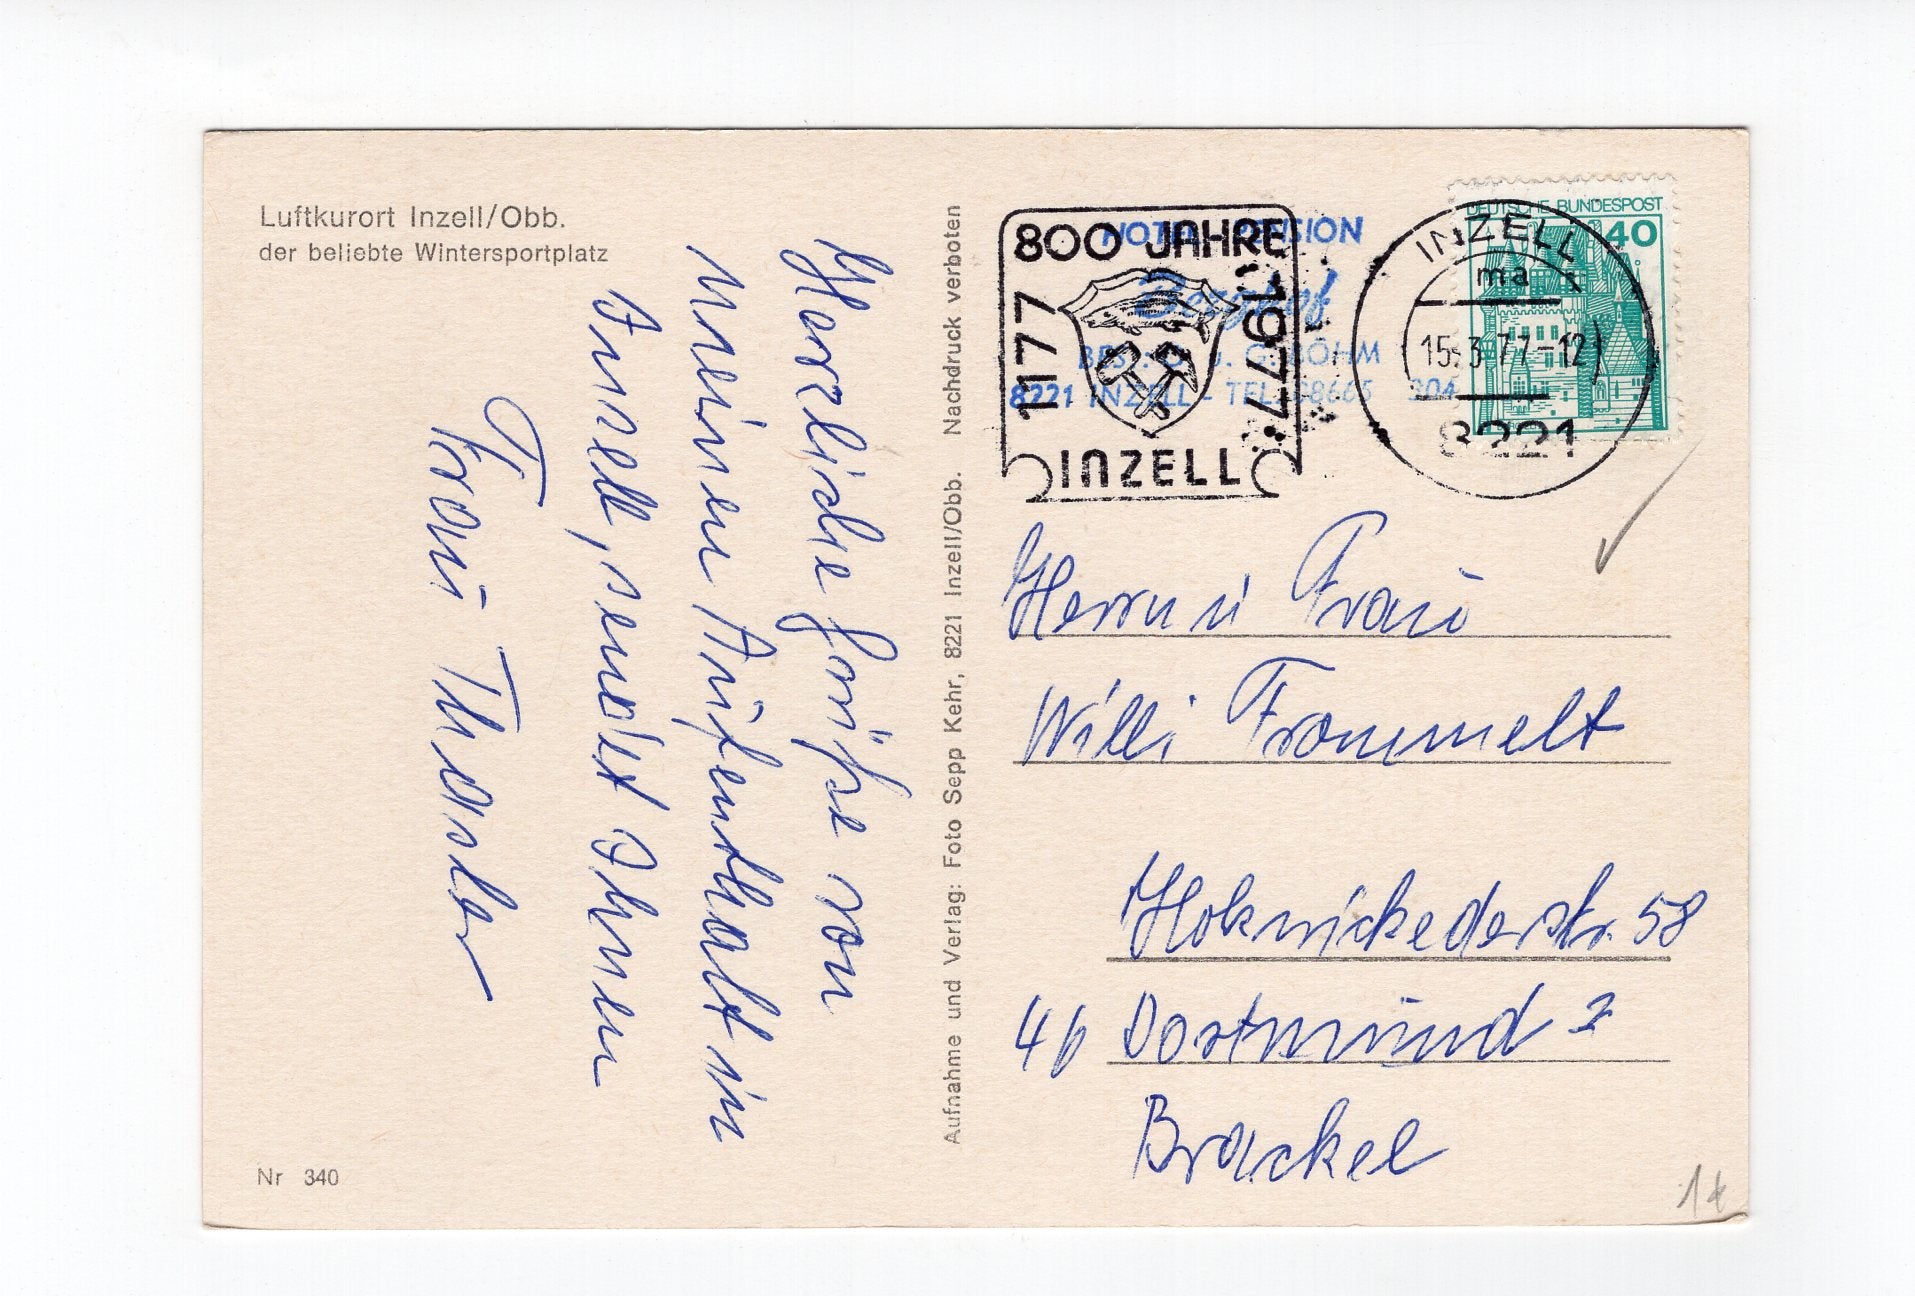 Luftkurort Inzell/Obb.
der beliebte Wintersportplatz
Herzliche Grüße von
meinem Aufenthalt in
Inzell, sendet Ihnen
Frau
Nr 340
Aufnahme und Verlag: Foto Sepp Kehr, 8221 Inzell/Obb. Nachdruck verboten
800 JAHRE
1177
1977
INZELL
HOTEL PENSION
Berghof
BÖHM
8221 INZELL - TEL.
304
DEUTSCHE BUNDESPOST
40
INZELL
ma
15.3.77-12
8221
Herrn u Frau
Willi Frommelt
58
46 Dortmund
Brackel